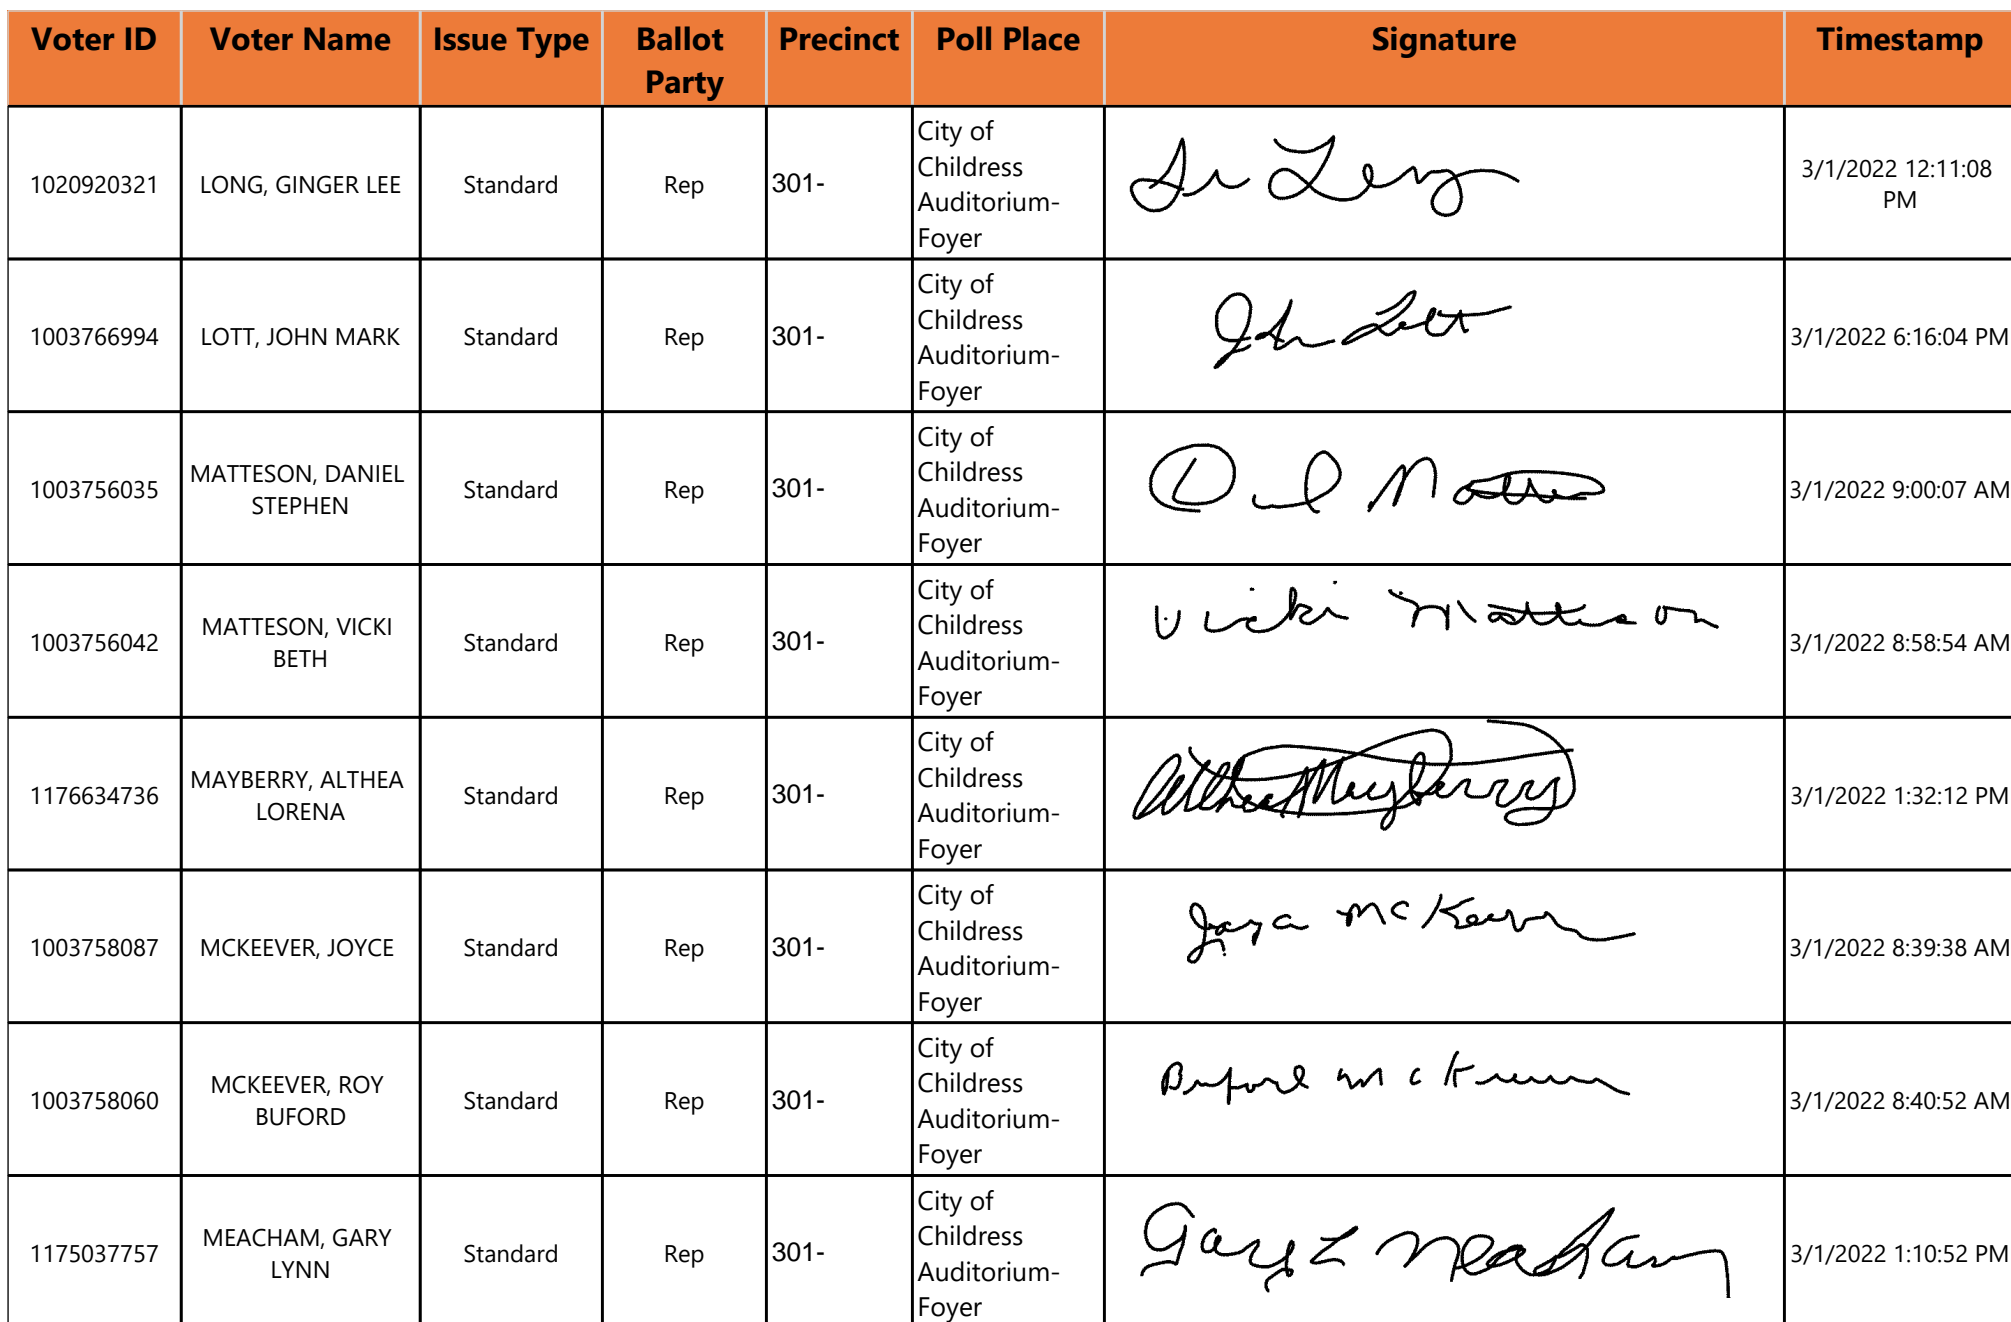 Voter ID Voter Name Issue Type Ballot Party Precinct Poll Place Signature Timestamp
1020920321 LONG, GINGER LEE Standard Rep 301- City of Childress Auditorium-Foyer 3/1/2022 12:11:08 PM
1003766994 LOTT, JOHN MARK Standard Rep 301- City of Childress Auditorium-Foyer John Lott 3/1/2022 6:16:04 PM
1003756035 MATTESON, DANIEL STEPHEN Standard Rep 301- City of Childress Auditorium-Foyer 3/1/2022 9:00:07 AM
1003756042 MATTESON, VICKI BETH Standard Rep 301- City of Childress Auditorium-Foyer Vicki Matteson 3/1/2022 8:58:54 AM
1176634736 MAYBERRY, ALTHEA LORENA Standard Rep 301- City of Childress Auditorium-Foyer Althea Mayberry 3/1/2022 1:32:12 PM
1003758087 MCKEEVER, JOYCE Standard Rep 301- City of Childress Auditorium-Foyer McKeever 3/1/2022 8:39:38 AM
1003758060 MCKEEVER, ROY BUFORD Standard Rep 301- City of Childress Auditorium-Foyer Buford McKeever 3/1/2022 8:40:52 AM
1175037757 MEACHAM, GARY LYNN Standard Rep 301- City of Childress Auditorium-Foyer Gary L Meacham 3/1/2022 1:10:52 PM